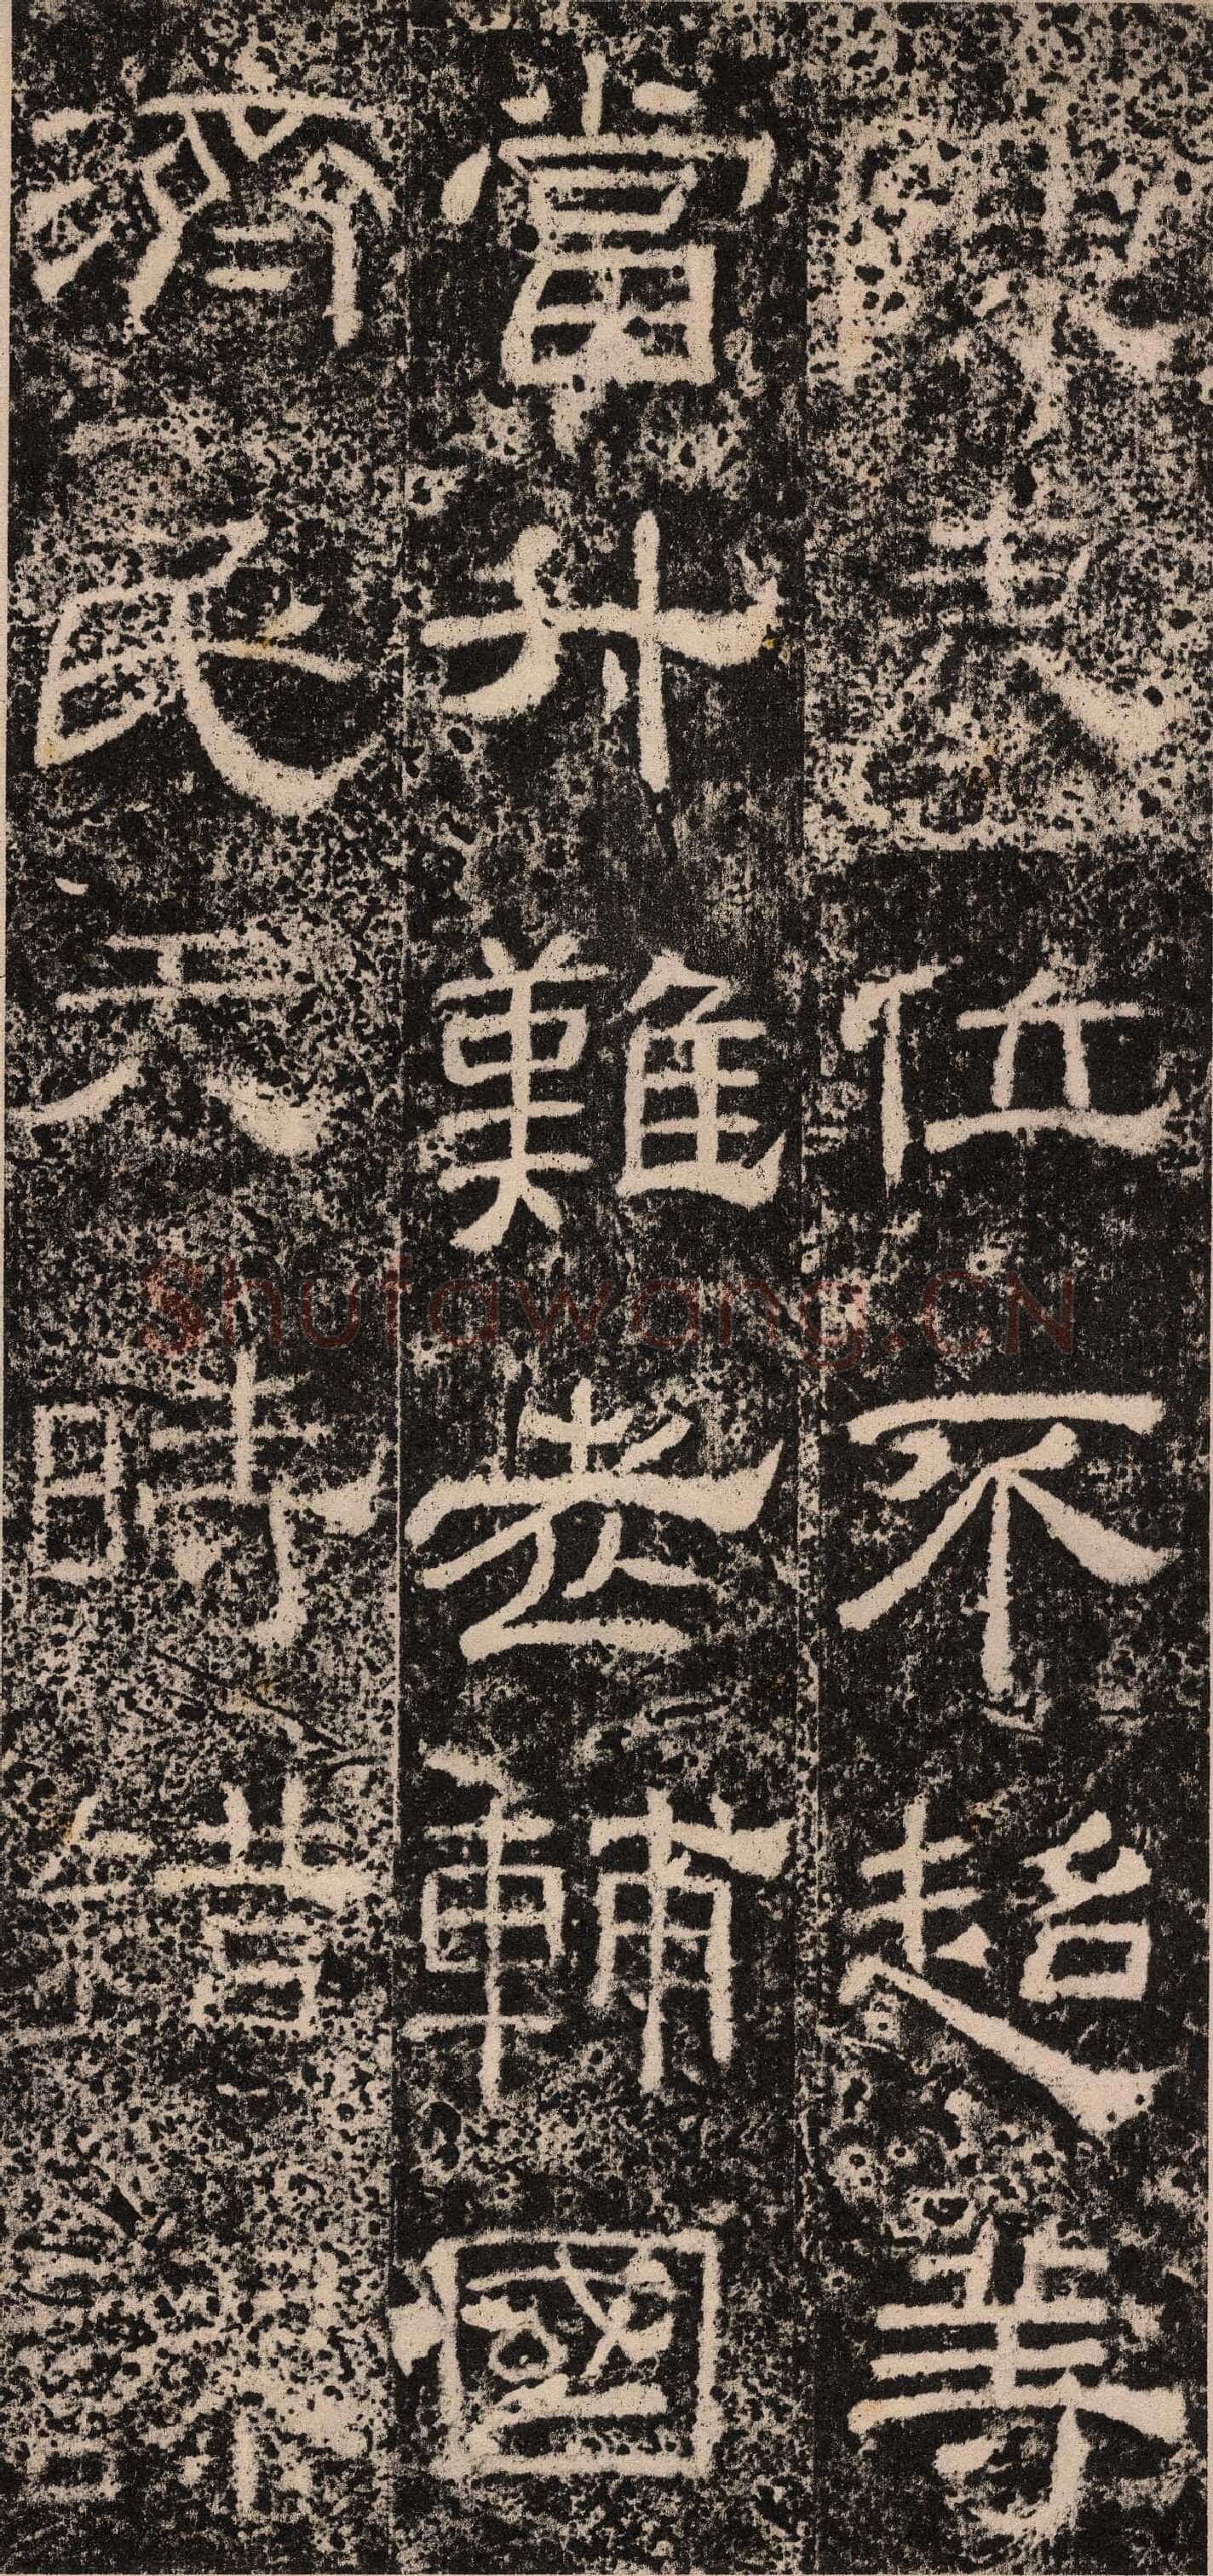 位不超等
當升難老輔國
濟民天時錯
Shufawang.CN